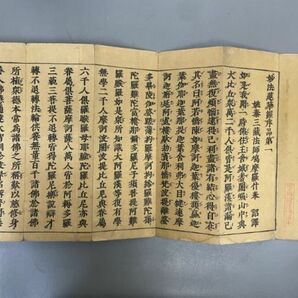 妙法蓮華經序品第一
姚秦三藏法師鳩摩羅什奉 詔譯
如是我聞一時佛住王舍城耆闍崛山中與
大比丘衆萬二千人俱皆是阿羅漢諸漏已
盡無復煩惱逮得己利盡諸有結心得自在
其名曰阿若憍陳如摩訶迦葉優樓頻螺迦
葉伽耶迦葉那提迦葉舍利弗大目犍連摩
訶迦旃延阿㝹樓馱劫賓那憍梵波提離婆
多畢陵伽婆蹉薄拘羅摩訶拘絺羅難陀孫
陀羅難陀富樓那彌多羅尼子須菩提阿難
羅睺羅如是衆所知識大阿羅漢等復有學
無學二千人摩訶波闍波提比丘尼與眷屬
六千人俱羅睺羅母耶輸陀羅比丘尼亦與
眷屬俱菩薩摩訶薩八萬人皆於阿耨多羅
三藐三菩提不退轉皆得陀羅尼樂說辯才
轉不退轉法輪供養無量百千諸佛於諸佛
所植衆德本常爲諸佛之所稱歎以慈修身
善入佛慧通達大智到於彼岸名稱普聞無